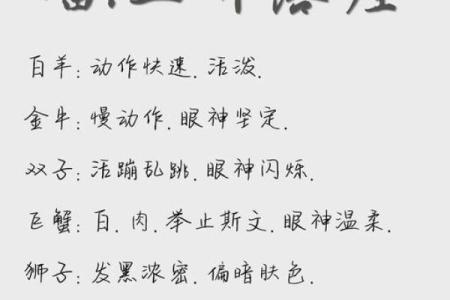 白羊: 动作快速. 活泼.
金牛: 慢动作. 眼神坚定.
双子: 活蹦乱跳. 眼神闪烁.
巨蟹: 白. 肉. 举止斯文. 眼神温柔.
狮子: 发黑浓密. 偏暗肤色.